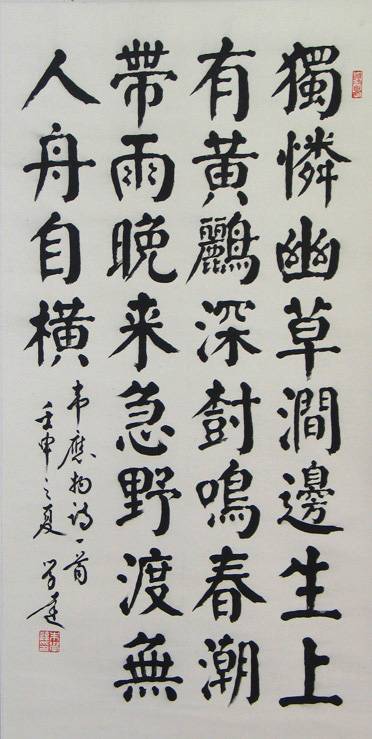 獨憐幽草澗邊生上
有黃鸝深樹鳴春潮
帶雨晚来急野渡無
人舟自橫
韦應物诗一首
壬申之夏